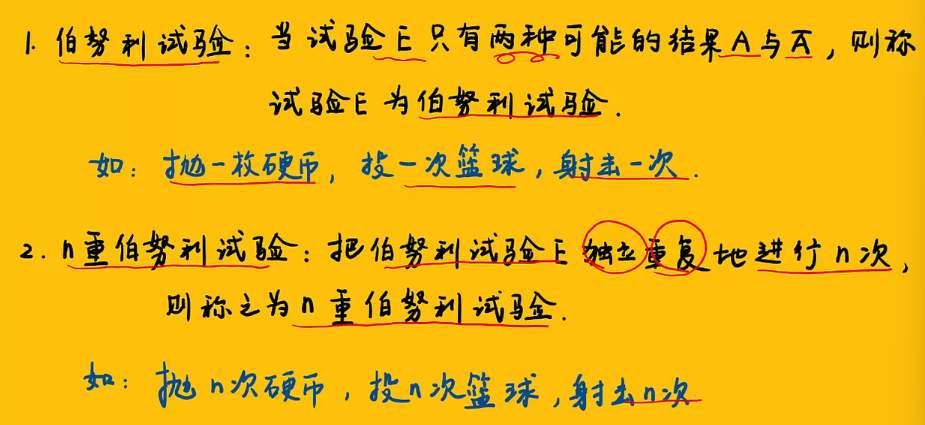 1. 伯努利试验：当试验E只有两种可能的结果A与A̅，则称
试验E为伯努利试验.
如：抛一枚硬币，投一次篮球，射击一次.
2. n重伯努利试验：把伯努利试验E独立重复地进行n次，
则称之为n重伯努利试验.
如：抛n次硬币，投n次篮球，射击n次